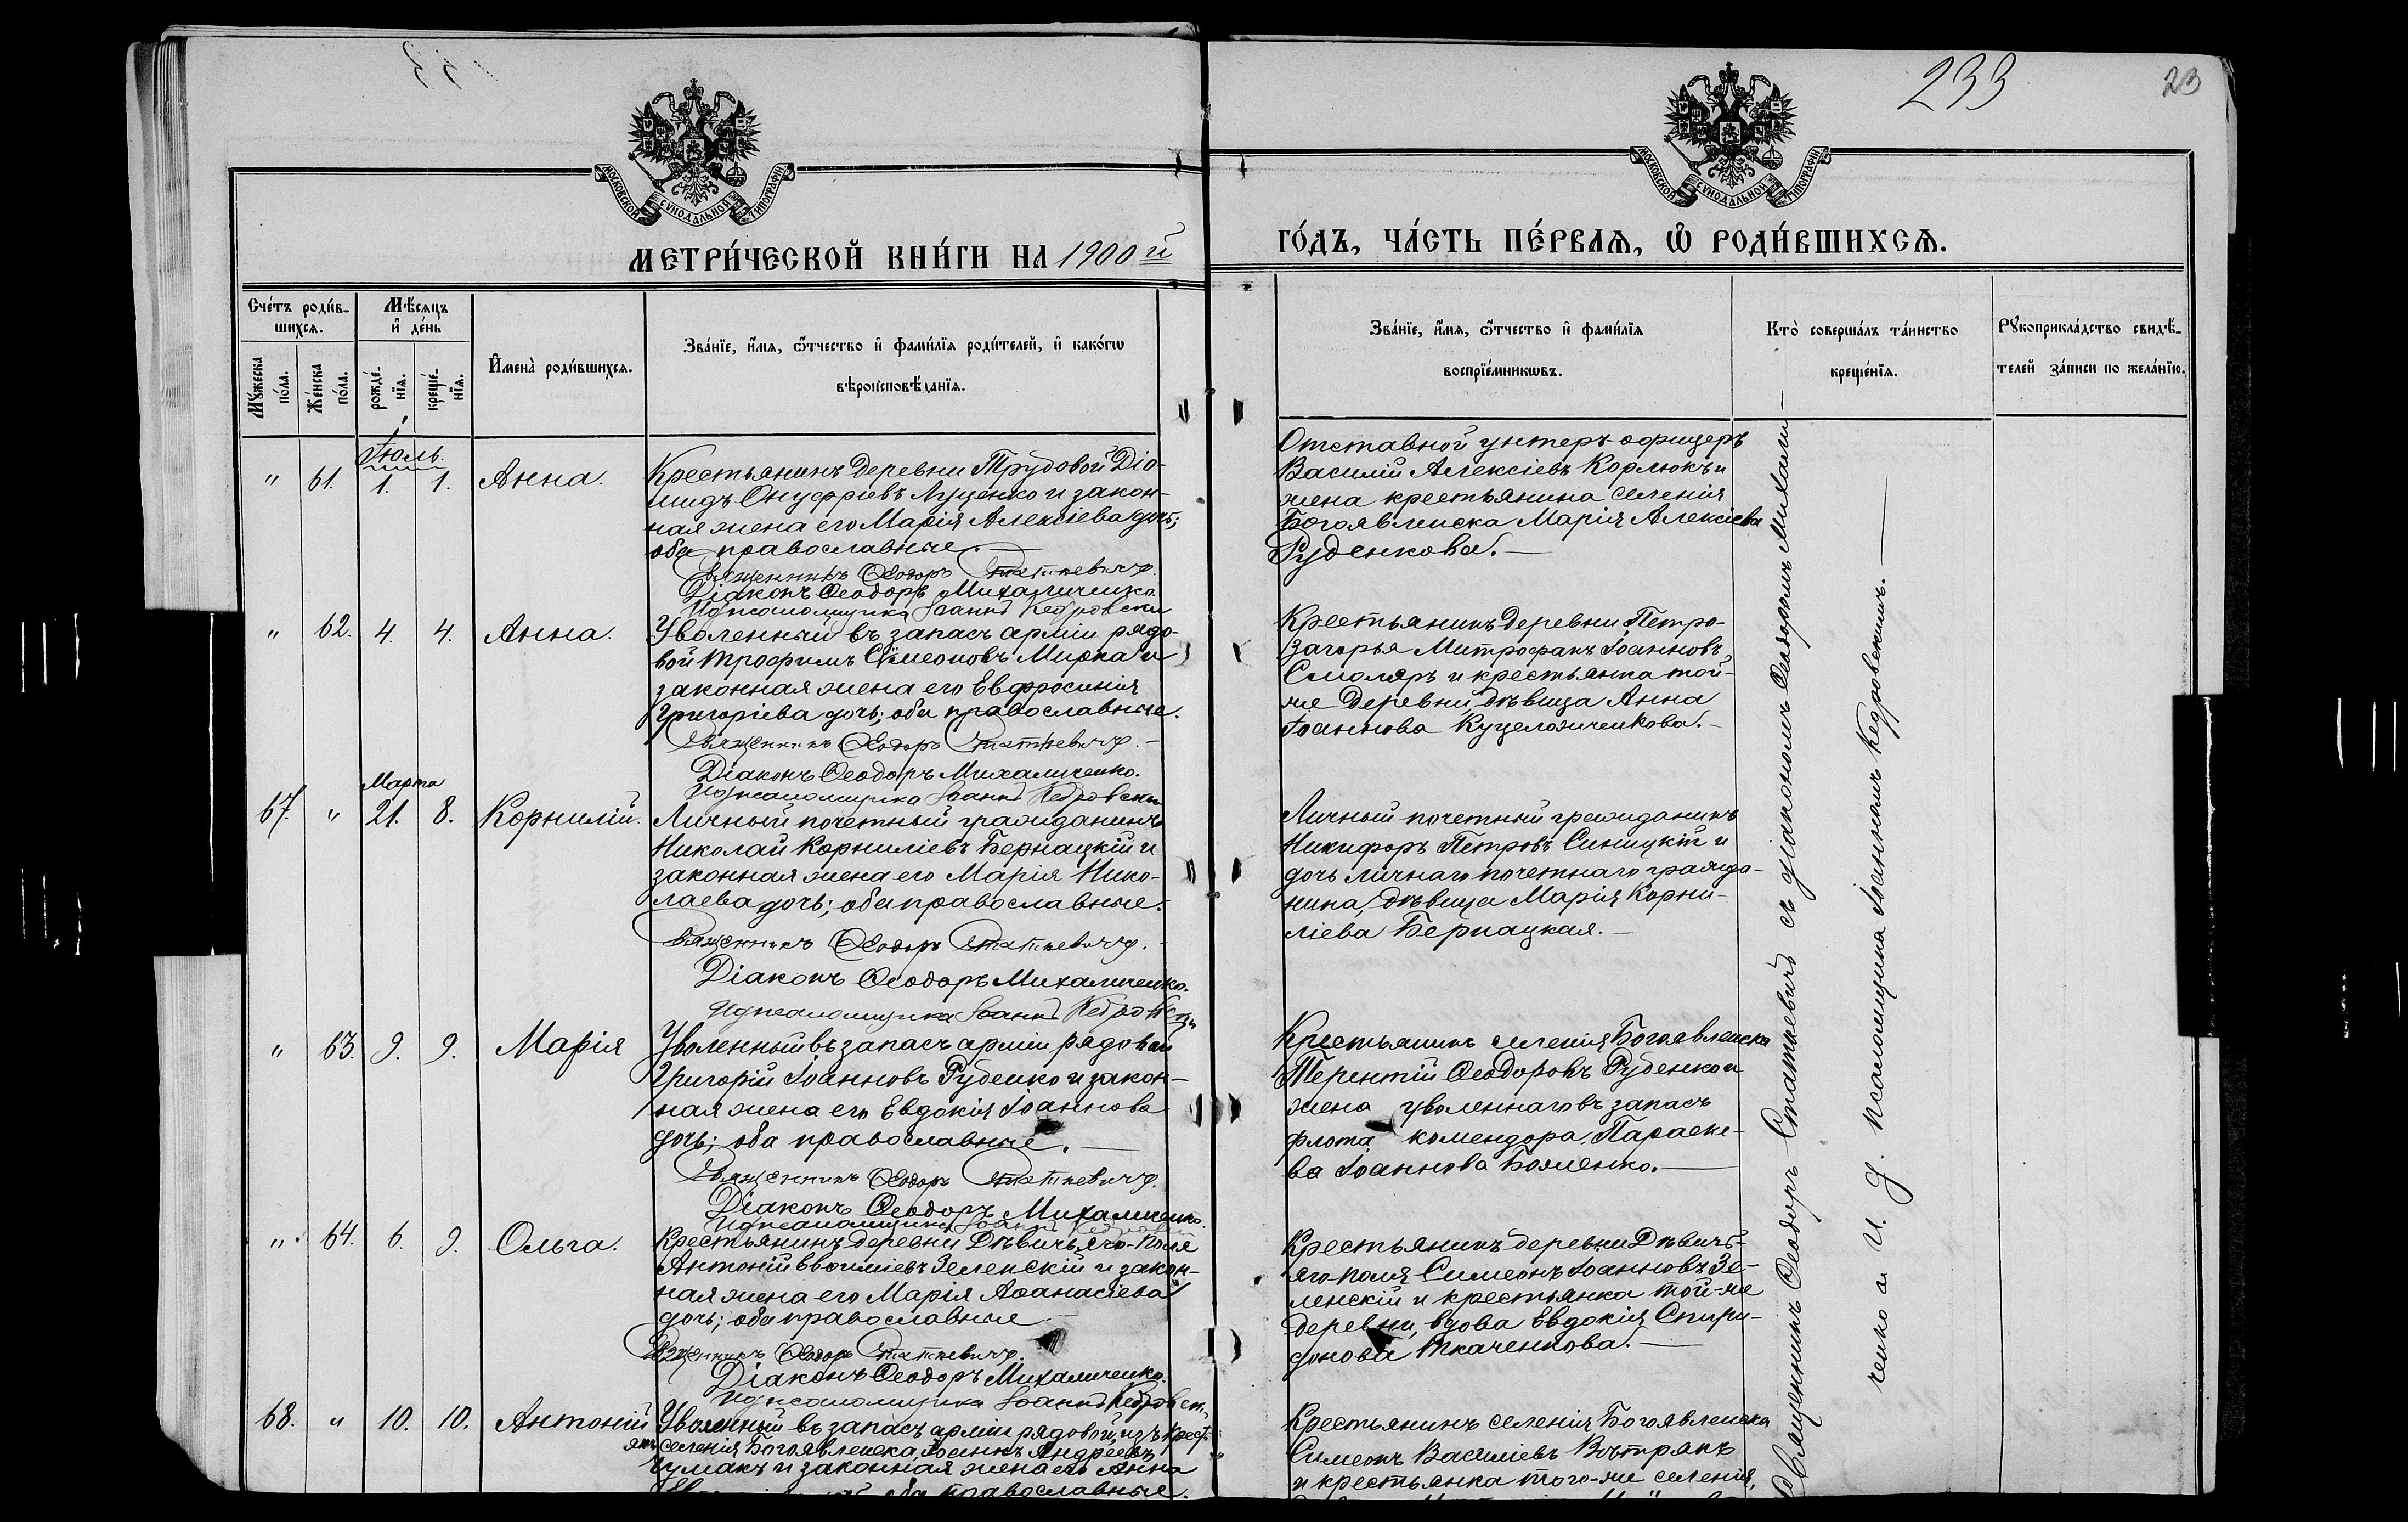 233
23
МОСКОВСКОЙ СѴНОДАЛЬНОЙ ТИПОГРАФІИ
МОСКОВСКОЙ СѴНОДАЛЬНОЙ ТИПОГРАФІИ
МЕТРИ́ЧЕСКОЙ КНИ́ГИ НА 1900 й
ГО́ДЪ, ЧА́СТЬ ПЕ́РВАѦ, Ѡ҆ РОДИ́ВШИХСѦ.
Сче́тъ роди́в-
шихсѧ.
Мѣ́сѧцъ
и҆ де́нь
И҆мена̀ роди́вшихсѧ.
Зва́нїе, и҆́мѧ, ѻ҆́тчество и҆ фами́лїѧ роди́телей, и҆ како́гѡ
вѣроисповѣ́данїѧ.
Мꙋ́жеска по́ла.
Же́нска по́ла.
рожде́-нїѧ.
креще́-нїѧ.
Зва́нїе, и҆́мѧ, ѻ҆́тчество и҆ фами́лїѧ
воспрїе́мникѡвъ.
Кто̀ соверша́лъ та́инство
креще́нїѧ.
Рꙋкоприкла́дство свидѣ́-
телей за́писи по жела́нїю.
Іюль.
" 61. 1. 1. Анна.
Крестьянинъ деревни Трудовой Діо-
мидъ Онуфріевъ Луценко и закон-
ная жена его Марія Алексіева дочь;
оба православные.
Священникъ Ѳеодоръ Статкевичъ.
Діаконъ Ѳеодоръ Михаличенко.
И д псаломщика Іоаннъ Кедровскій
Отставной унтеръ-офицеръ
Василій Алексіевъ Корлюкъ и
жена крестьянина селенія
Богоявленска Марія Алексіева
Руденкова.
" 62. 4. 4. Анна.
Уволенный въ запасъ арміи рядо-
вой Трофимъ Сѵмеоновъ Мирка и
законная жена его Евфросинія
Григоріева дочь; оба православные.
Священникъ Ѳеодоръ Статкевичъ.
Діаконъ Ѳеодоръ Михаличенко.
И д псаломщика Іоаннъ Кедровскій
Крестьянинъ деревни Петро-
Загорья Митрофанъ Іоанновъ
Смоляръ и крестьянка той-
же деревни, дѣвица Анна
Іоаннова Куцеложченкова.
Марта
67. " 21. 8. Корнилій.
Личный почетный гражданинъ
Николай Корниліевъ Бернацкій и
законная жена его Марія Нико-
лаева дочь; оба православные.
Священникъ Ѳеодоръ Статкевичъ.
Діаконъ Ѳеодоръ Михаличенко.
И д псаломщика Іоаннъ Кедровскій
Личный почетный гражданинъ
Никифоръ Петровъ Синицкій и
дочь личнаго почетнаго гражда-
нина, дѣвица Марія Корни-
ліева Бернацкая.
" 63. 9. 9. Марія
Уволенный въ запасъ арміи рядовой
Григорій Іоанновъ Руденко и закон-
ная жена его Евдокія Іоаннова
дочь; оба православные.
Священникъ Ѳеодоръ Статкевичъ.
Діаконъ Ѳеодоръ Михаличенко.
И д псаломщика Іоаннъ
Крестьянинъ селенія Богоявленска
Терентій Ѳеодоровъ Руденко и
жена уволеннаго въ запасъ
флота комендора, Параске-
ва Іоаннова Боженко.
" 64. 6. 9. Ольга.
Крестьянинъ деревни Дѣвичьяго-Поля
Антоній Василіевъ Зеленскій и закон-
ная жена его Марія Аѳанасіева
дочь; оба православные
Священникъ Ѳеодоръ Статкевичъ.
Діаконъ Ѳеодоръ Михаличенко.
И д псаломщика Іоаннъ Кедровскій
Крестьянинъ деревни Дѣвичь-
яго-поля Симеонъ Іоанновъ Зе-
ленскій и крестьянка той-же
деревни, вдова Евдокія Спири-
донова Ткаченкова.
68. " 10. 10. Антоній
Уволенный въ запасъ арміи рядовой, изъ крест-
янъ селенія Богоявленска, Іоаннъ Андреевъ
Чумакъ и законная жена его Анна
оба православные.
Крестьянинъ селенія Богоявленска
Симеонъ Василіевъ Вѣтрякъ
и крестьянка того-же селенія,
Священникъ Ѳеодоръ Статкевичъ съ діакономъ Ѳеодоромъ Михали-
ченко и И. д. псаломщика Іоанномъ Кедровскимъ.